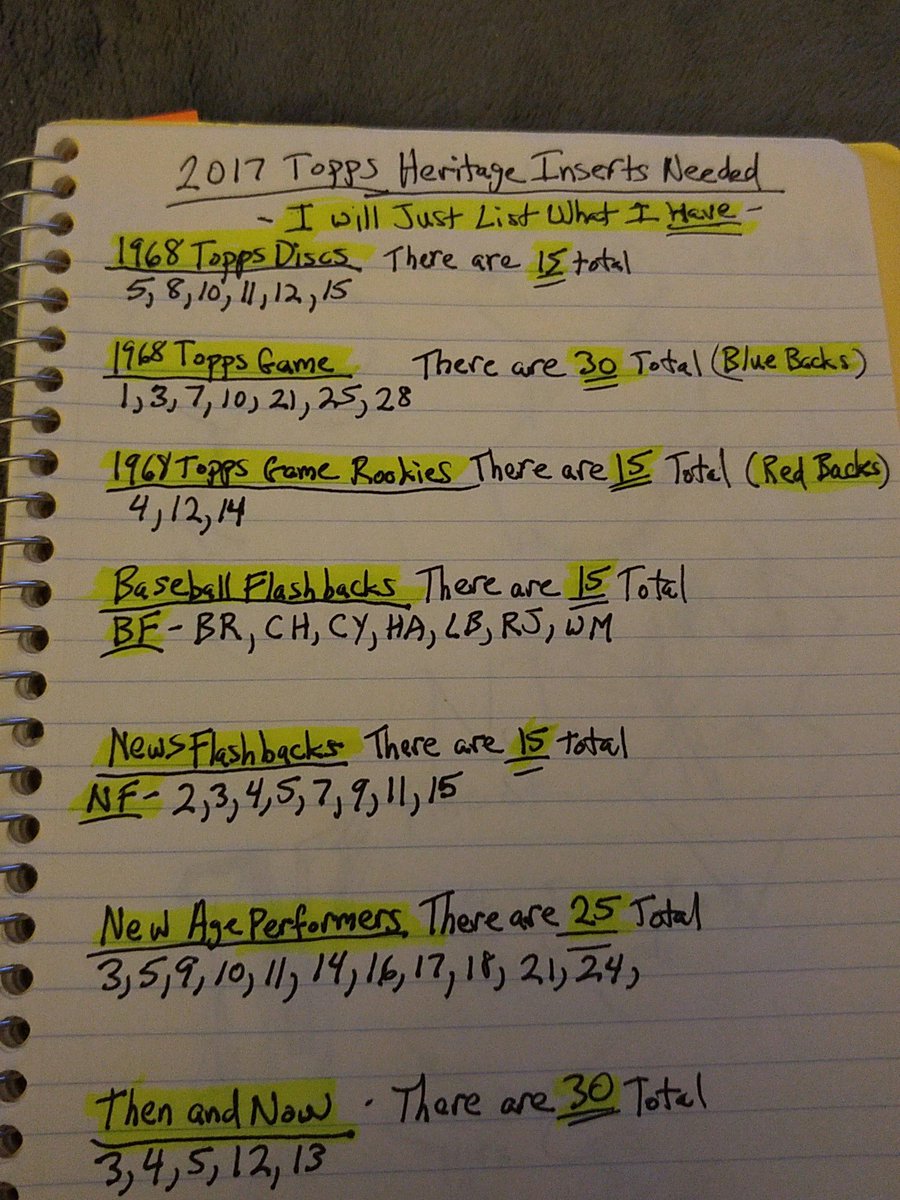 2017 Topps Heritage Inserts Needed
- I will Just List What I Have -
1968 Topps Discs There are 15 total
5, 8, 10, 11, 12, 15
1968 Topps Game There are 30 Total (Blue Backs)
1, 3, 7, 10, 21, 25, 28
1968 Topps Game Rookies There are 15 Total (Red Backs)
4, 12, 14
Baseball Flashbacks There are 15 Total
BF - BR, CH, CY, HA, LB, RJ, WM
News Flashbacks There are 15 total
NF - 2, 3, 4, 5, 7, 9, 11, 15
New Age Performers. There are 25 Total
3, 5, 9, 10, 11, 14, 16, 17, 18, 21, 24,
Then and Now . There are 30 Total
3, 4, 5, 12, 13